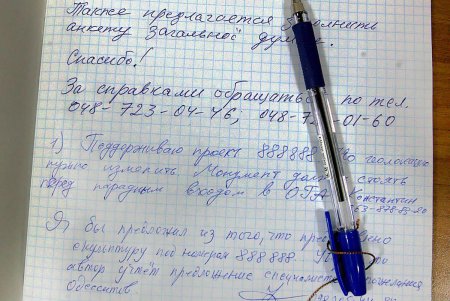 Также предлагается заполнить
анкету Загальної
Спасибо!
За справками обращаться по тел.
048-723-04-46, 048-72 -01-60
1) Поддерживаю проект 888888. Но
нужно изменить. Монумент должен стоять
перед парадным входом в ОГА. Константин
Я бы предложил из того, что
скульптуру под номером 888888.
автор учтёт предложение
Одесситов.